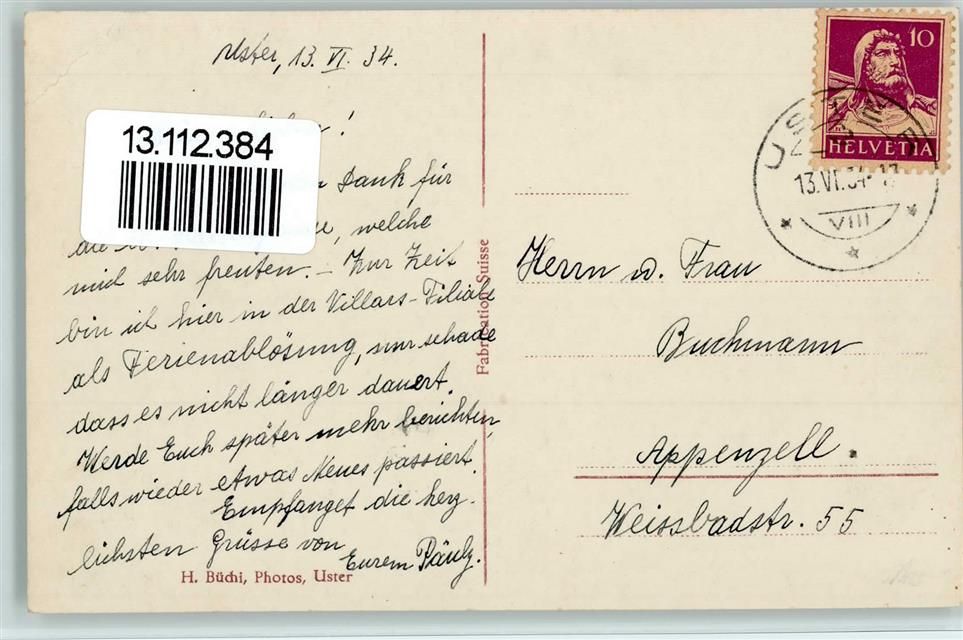 Uster, 13. VI. 34.
!
13.112.384
Dank für
die welche
mich sehr freuten. – Zur Zeit
bin ich hier in der Villars-Filiale
als Ferienablösung, nur schade
dass es nicht länger dauert.
Werde Euch später mehr berichten,
falls wieder etwas Neues passiert.
Empfanget die herz-
lichsten Grüsse von
Eurem
H. Büchi, Photos, Uster
Fabrication Suisse
10
HELVETIA
13.VI.34-
VIII
Herrn u. Frau
Buchmann
Appenzell.
Weissbadstr. 55